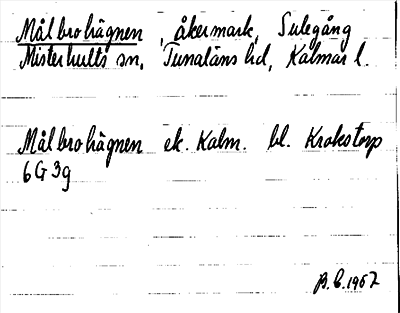 Målbrohägnen, åkermark, Sulegång
Misterhults sn, Tunaläns hd, Kalmar l.
Målbrohägnen ek. Kalm. bl. Krokstorp
6G3g
B.C. 1967